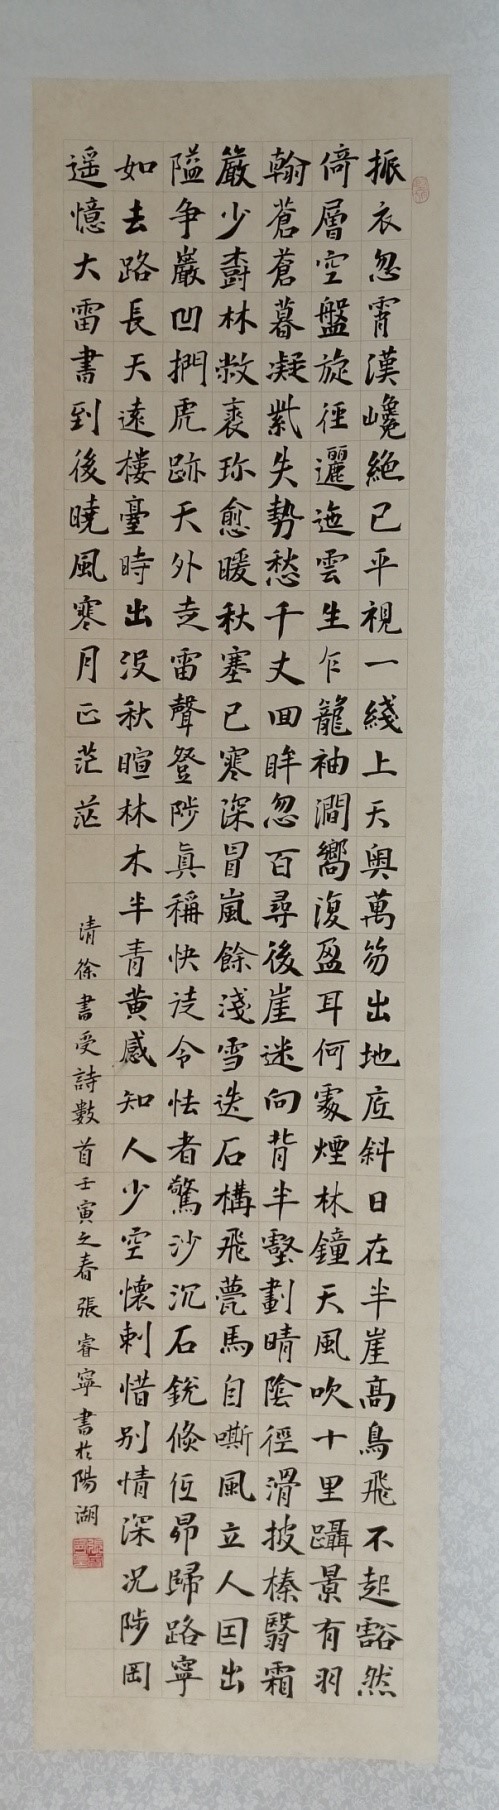 振衣忽霄漢巉絶已平視一綫上天輿萬笏出地底斜日在半崖高鳥飛不起豁然
倚層空盤旋徑邐迤雲生乍籠袖澗嚮復盈耳何處煙林鐘天風吹十里躡景有羽
翰蒼蒼暮凝紫失勢愁千丈回眸忽百尋後崖迷向背半壑劃晴陰徑滑披榛翳霜
嚴少樹林敝裘珎愈暖秋塞已寒深冒嵐餘淺雪迭石構飛甍馬自嘶風立人因出
隘争巖凹捫虎跡天外走雷聲登陟真稱快徒令怯者驚沙沉石銳倏低昂歸路寧
如去路長天遠樓臺時出没秋暄林木半青黄感知人少空懷刺惜别情深况陟岡
遥憶大雷書到後曉風寒月正茫茫
清徐書受詩數首壬寅之春張睿寧書於陽湖